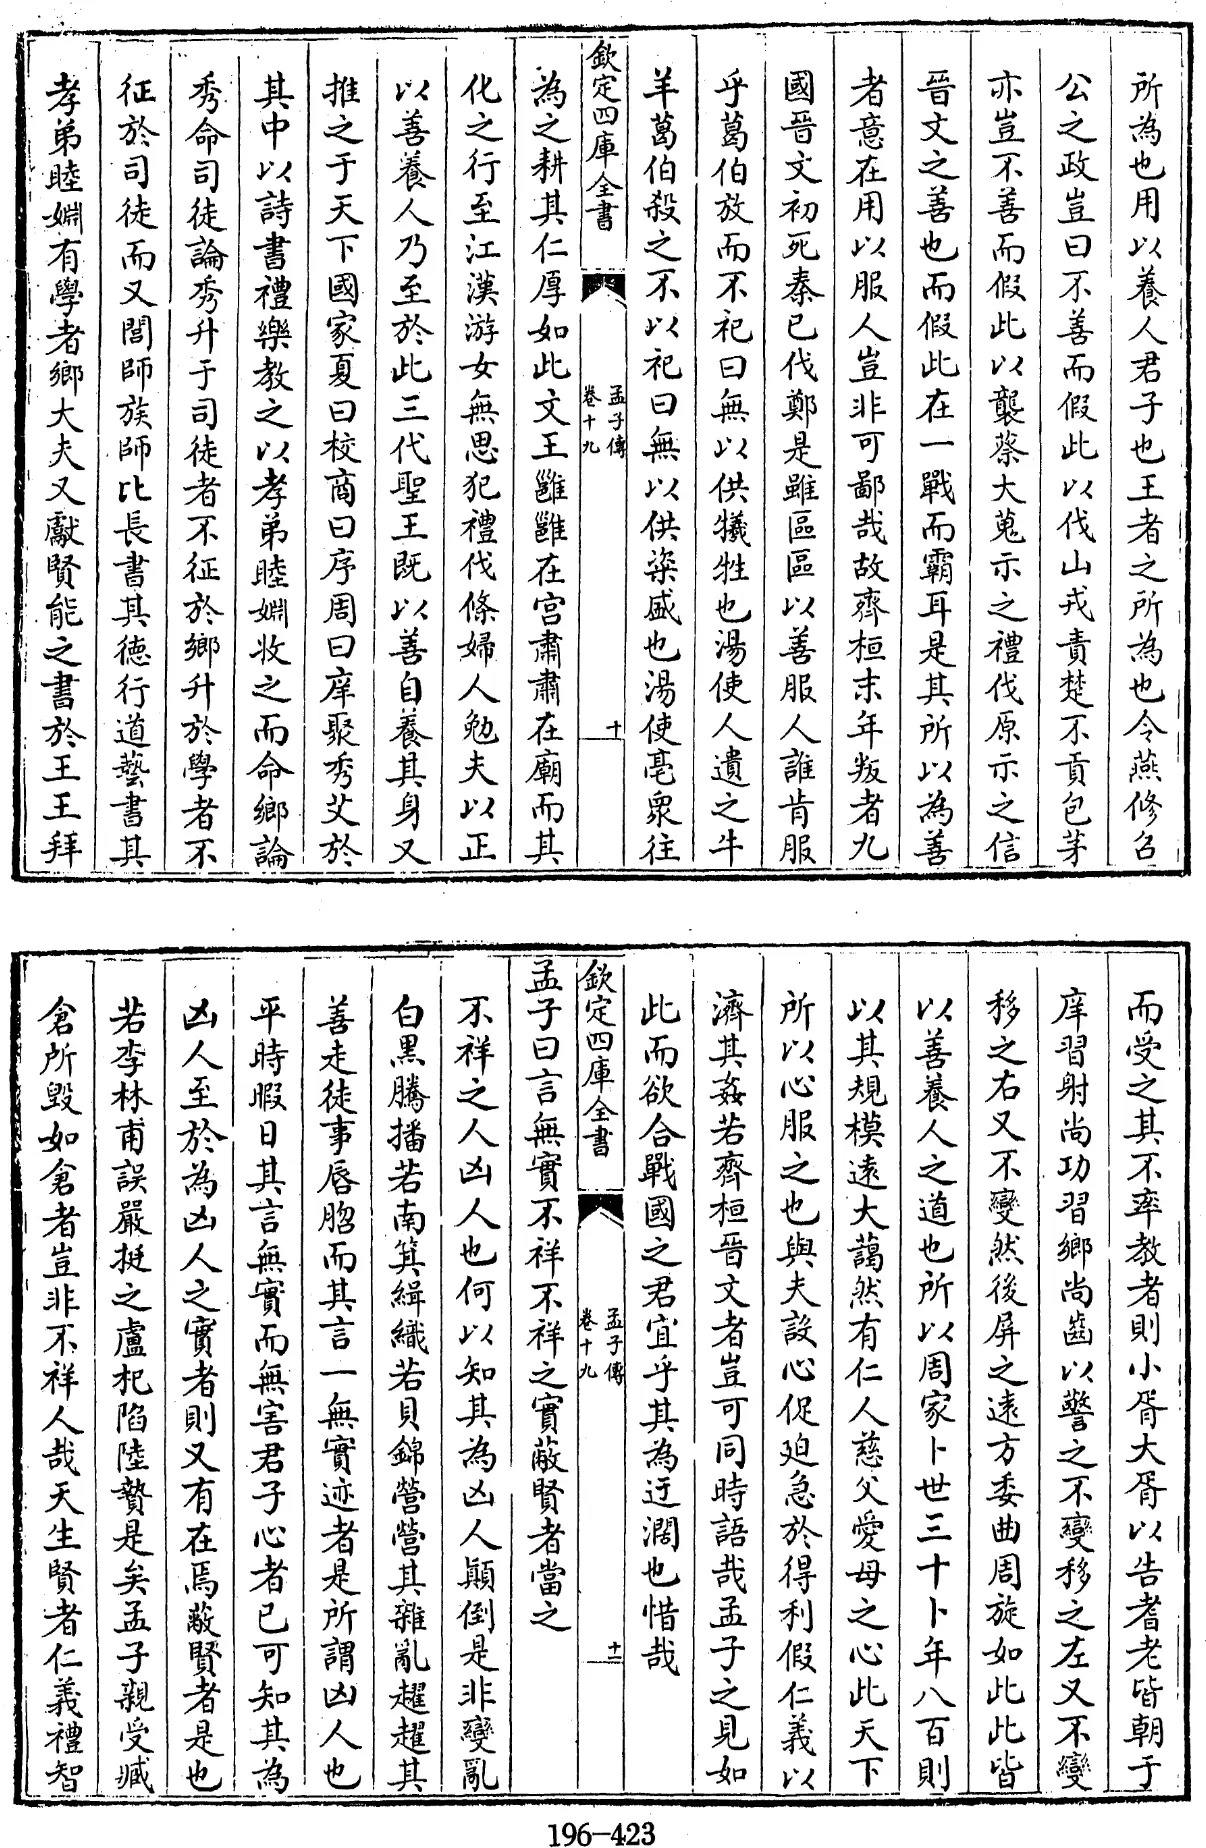 所為也用以養人君子也王者之所為也令燕修召
公之政豈曰不善而假此以伐山戎責楚不貢包茅
亦豈不善而假此以襲蔡大蒐示之禮伐原示之信
晉文之善也而假此在一戰而霸耳是其所以為善
者意在用以服人豈非可鄙哉故齊桓末年叛者九
國晉文初死秦已伐鄭是雖區區以善服人誰肯服
乎葛伯放而不祀曰無以供犧牲也湯使人遺之牛
羊葛伯殺之不以祀曰無以供粢盛也湯使亳衆往
欽定四庫全書
孟子傳
卷十九
十
為之耕其仁厚如此文王雝雝在宫肅肅在廟而其
化之行至江漢游女無思犯禮伐條婦人勉夫以正
以善養人乃至於此三代聖王既以善自養其身又
推之于天下國家夏曰校商曰序周曰庠聚秀艾於
其中以詩書禮樂教之以孝弟睦婣收之而命鄉論
秀命司徒論秀升于司徒者不征於鄉升於學者不
征於司徒而又閭師族師比長書其德行道藝書其
孝弟睦婣有學者鄉大夫又獻賢能之書於王王拜
而受之其不率教者則小胥大胥以告耆老皆朝于
庠習射尚功習鄉尚齒以警之不變移之左又不變
移之右又不變然後屏之逺方委曲周旋如此此皆
以善養人之道也所以周家卜世三十卜年八百則
以其規模逺大藹然有仁人慈父愛母之心此天下
所以心服之也與夫設心促廹急於得利假仁義以
濟其姦若齊桓晉文者豈可同時語哉孟子之見如
此而欲合戰國之君宜乎其為迂濶也惜哉
欽定四庫全書
孟子傳
卷十九
十一
孟子曰言無實不祥不祥之實蔽賢者當之
不祥之人凶人也何以知其為凶人顛倒是非變亂
白黑騰播若南箕緝織若貝錦營營其雜亂趯趯其
善走徒事唇吻而其言一無實迹者是所謂凶人也
平時暇日其言無實而無害君子心者已可知其為
凶人至於為凶人之實者則又有在焉蔽賢者是也
若李林甫誤嚴挺之盧杞陷陸贄是矣孟子親受臧
倉所毀如倉者豈非不祥人哉天生賢者仁義禮智
196-423